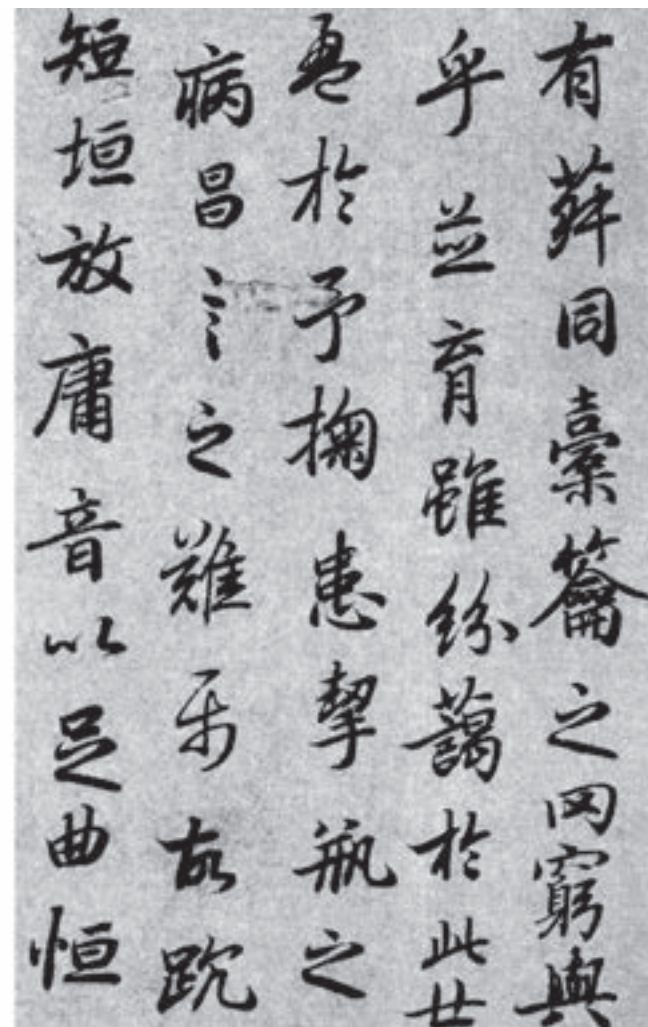 有菽同橐籥之罔窮與
乎並育雖紛藹於此世
盈於予掬患挈瓶之
病昌言之難属故踸
短垣放庸音以足曲恒